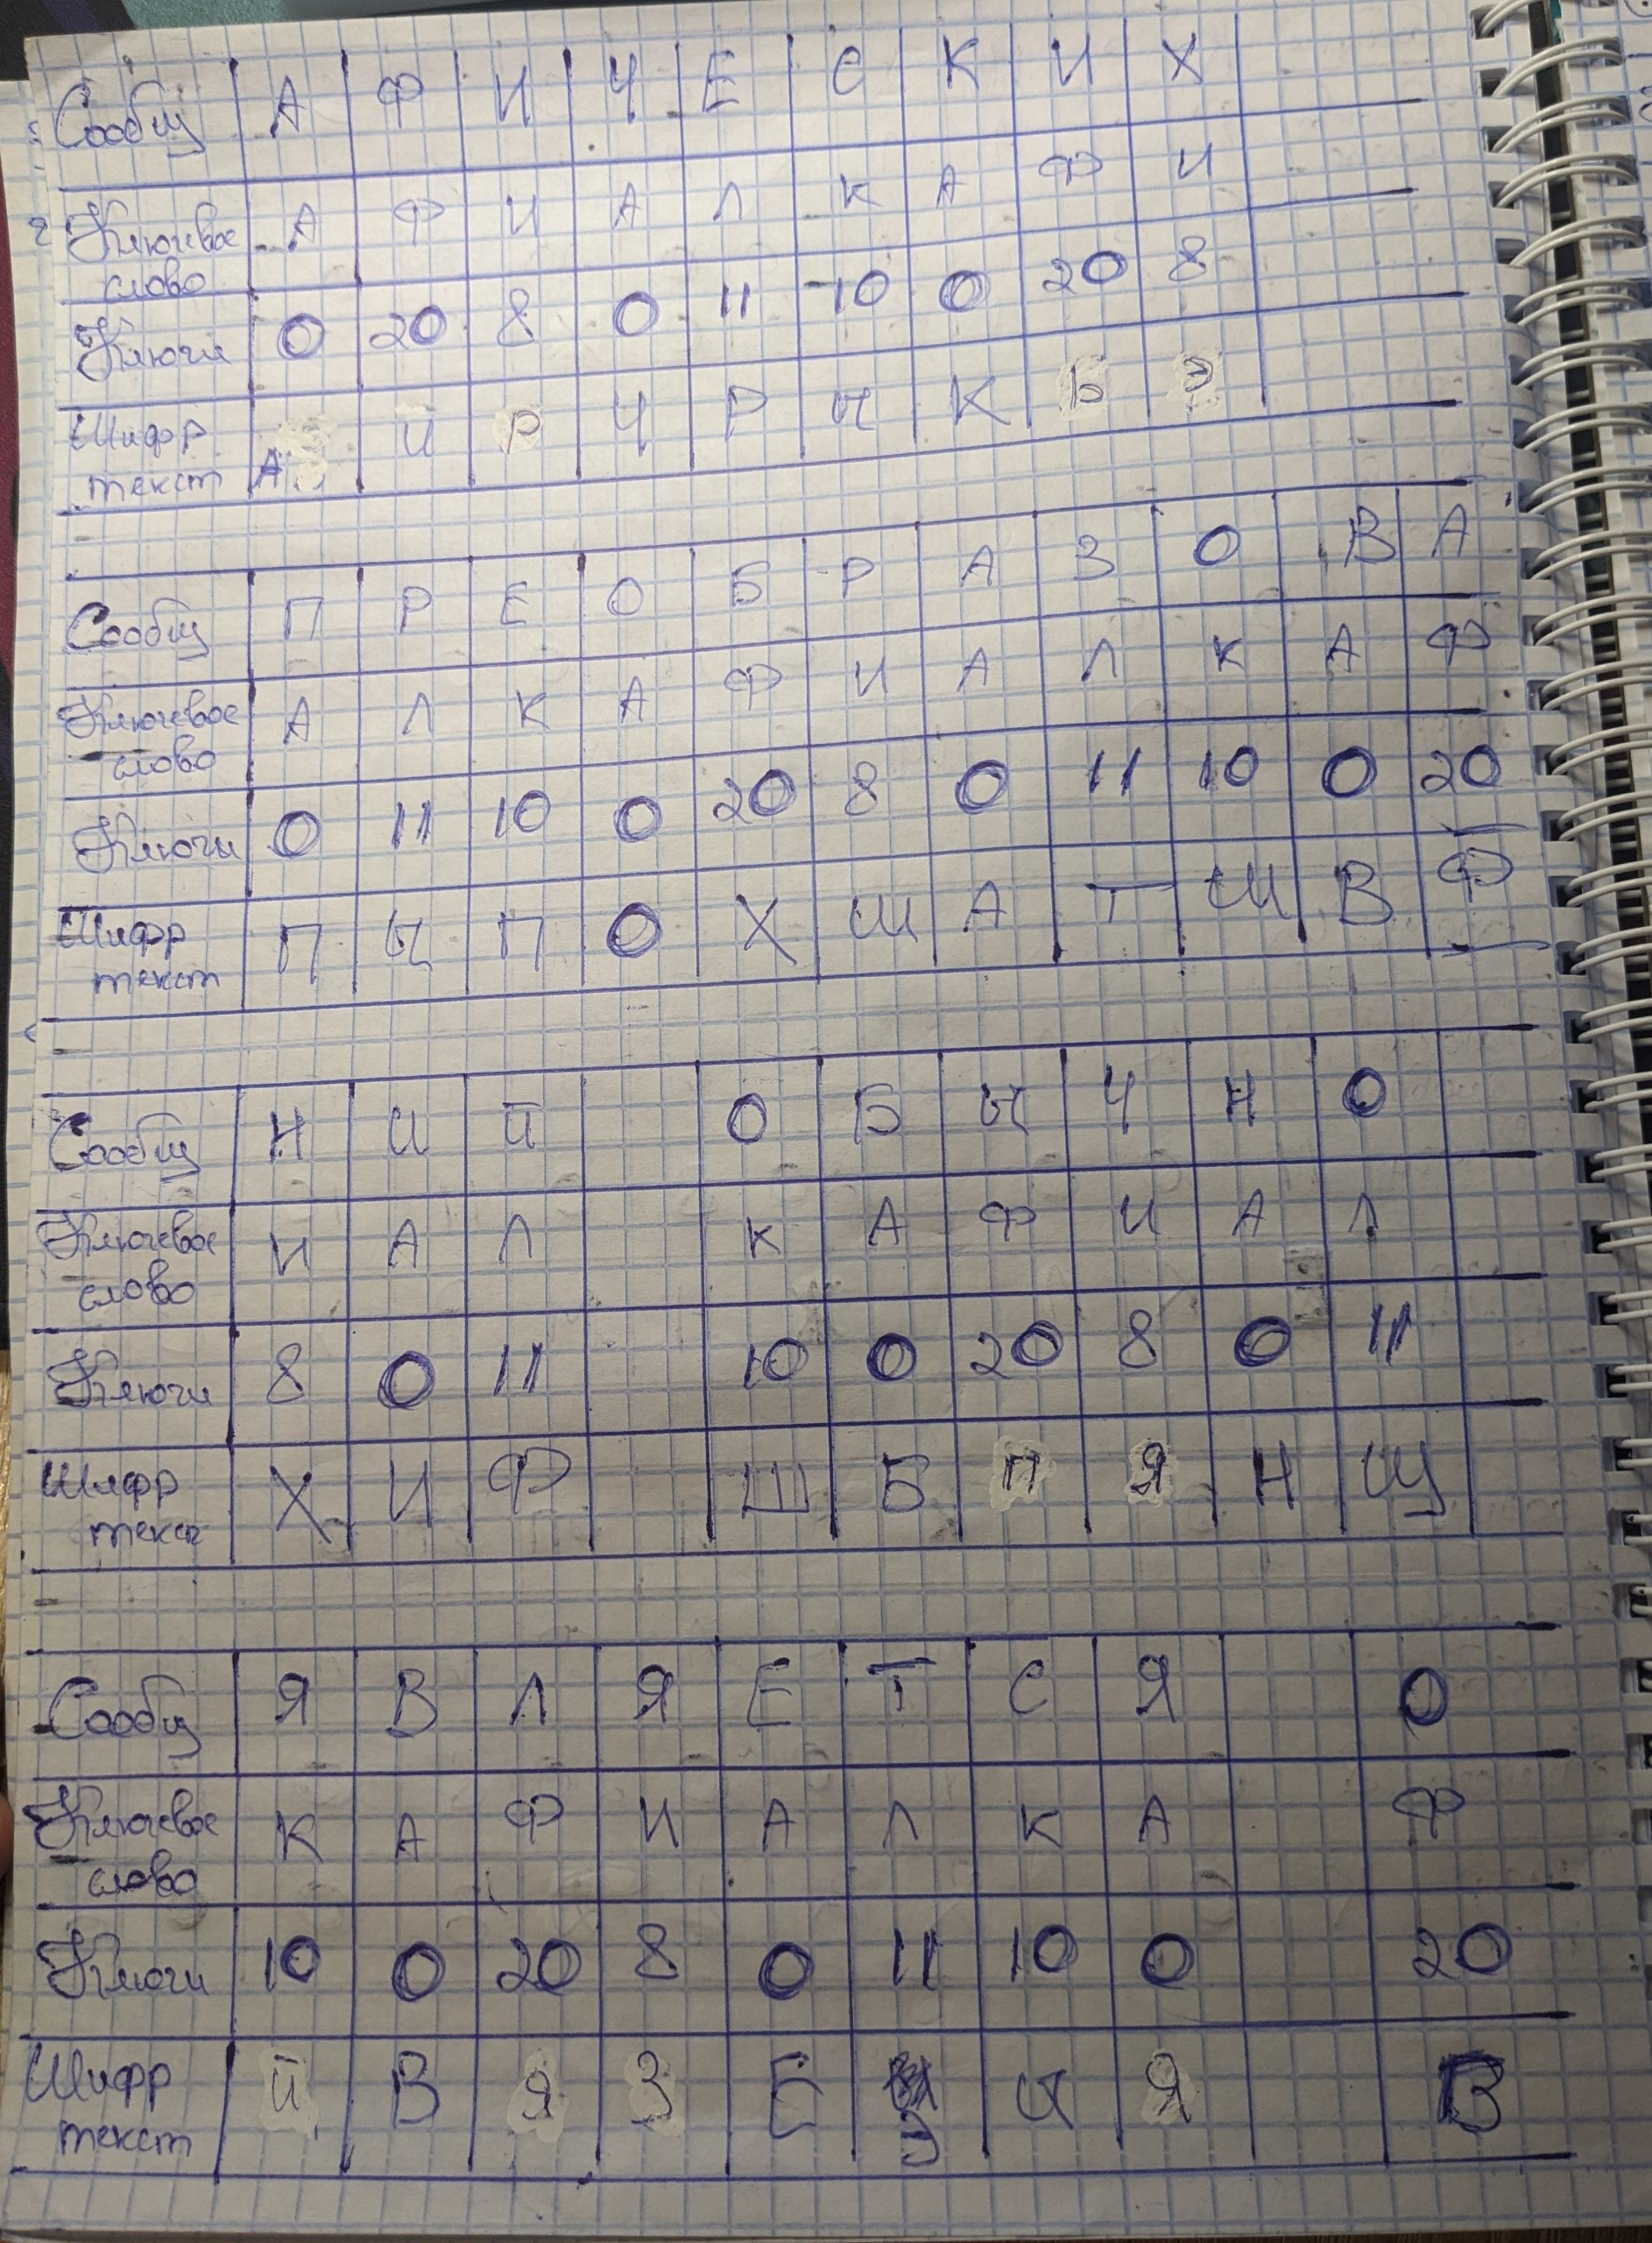 Сообщ А Ф И Ч Е С К И Х
Ключевое слово А Ф И А Л К А Ф И
Ключи 0 20 8 0 11 10 0 20 8
Шифр текст А Й Р Ч Р Ы К Ь Э
Сообщ П Р Е О Б Р А З О В А
Ключевое слово А Л К А Ф И А Л К А Ф
Ключи 0 11 10 0 20 8 0 11 10 0 20
Шифр текст П Ы П О Х Ш А Т Ш В Ф
Сообщ Н И Й О Б Ы Ч Н О
Ключевое слово И А Л К А Ф И А Л
Ключи 8 0 11 10 0 20 8 0 11
Шифр текст Х И Ф Ш Б П Я Н Щ
Сообщ Я В Л Я Е Т С Я О
Ключевое слово К А Ф И А Л К А Ф
Ключи 10 0 20 8 0 11 10 0 20
Шифр текст Й В Я З Е Э Ы Я В